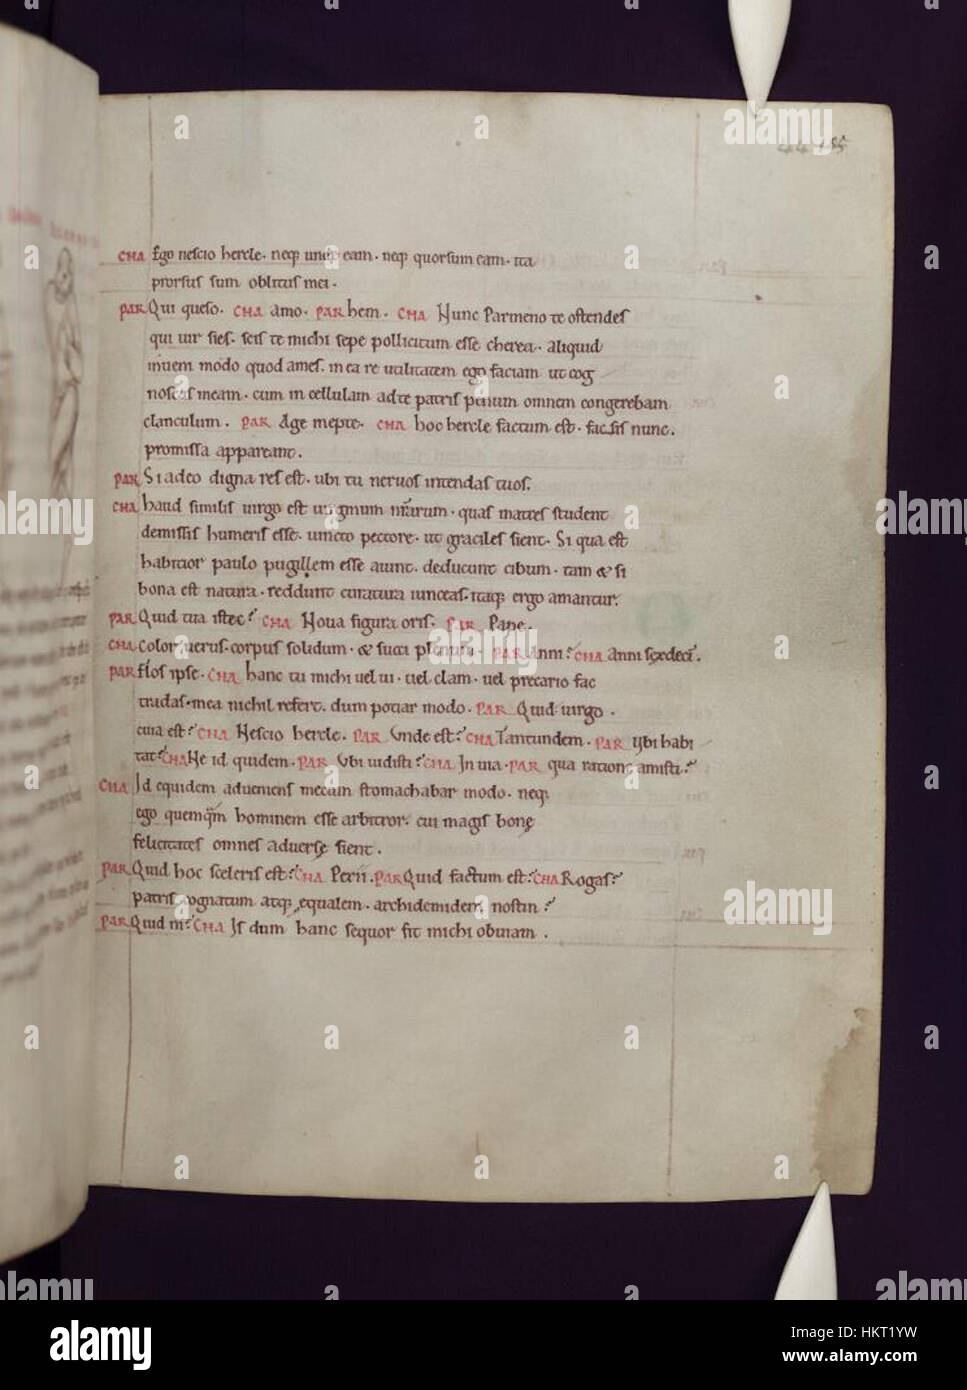 CHA Ego nescio hercle. neq; unde eam. neq; quorsum eam. ita
prorsus sum oblitus mei.
PAR Qui queso. CHA amo. PAR hem. CHA Nunc Parmeno te ostendes
qui uir sies. scis te michi sepe pollicitum esse cherea. aliquid
inueni modo quod ames. in ea re utilitatem ego faciam ut cog
noscas meam. cum in cellulam ad te patris penum omnem congerebam
clanculum. PAR Age inepte. CHA hoc hercle factum est. fac sis nunc.
promissa appareant.
PAR Si adeo digna res est. ubi tu neruos intendas tuos.
CHA haud similis uirgo est uirginum nrarum. quas matres student
demissis humeris esse. uincto pectore. ut graciles sient. Si qua est
habitior paulo pugillem esse aiunt. deducunt cibum. tam & si
bona est natura. reddunt curatura iunceas. itaq; ergo amantur.
PAR Quid tua istec? CHA Noua figura oris. PAR Pape.
CHA color uerus. corpus solidum. & succi plenum. PAR Anni? CHA Anni sedeci.
PAR flos ipse. CHA hanc tu michi uel ui. uel clam. uel precario fac
tradas. mea nichil refert. dum potiar modo. PAR Quid uirgo.
cuia est? CHA Nescio hercle. PAR Unde est? CHA Tantundem. PAR Ubi habi
tat? CHA Ne id quidem. PAR Ubi uidisti? CHA In uia. PAR qua ratione amisti?
CHA Id equidem adueniens mecum stomachabar modo. neq;
ego quemqm hominem esse arbitror. cui magis bonę
felicitates omnes aduersę sient.
PAR Quid hoc sceleris est? CHA Perii. PAR Quid factum est? CHA Rogas?
patris cognatum atq; equalem. archidemidem nostin?
PAR Quid ni? CHA Is dum hanc sequor fit michi obuiam.
alamy
Image ID: HKT1YW
www.alamy.com